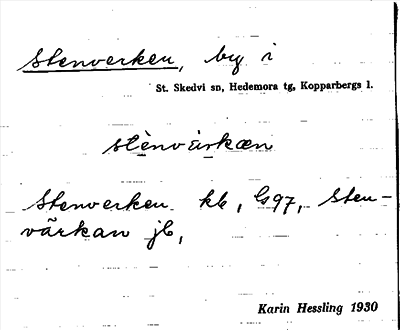 Stenverken, by i
St. Skedvi sn, Hedemora tg, Kopparbergs l.
stènvàrkæn
Stenverken kb, G97, Sten-
värkan jb,
Karin Hessling 1930